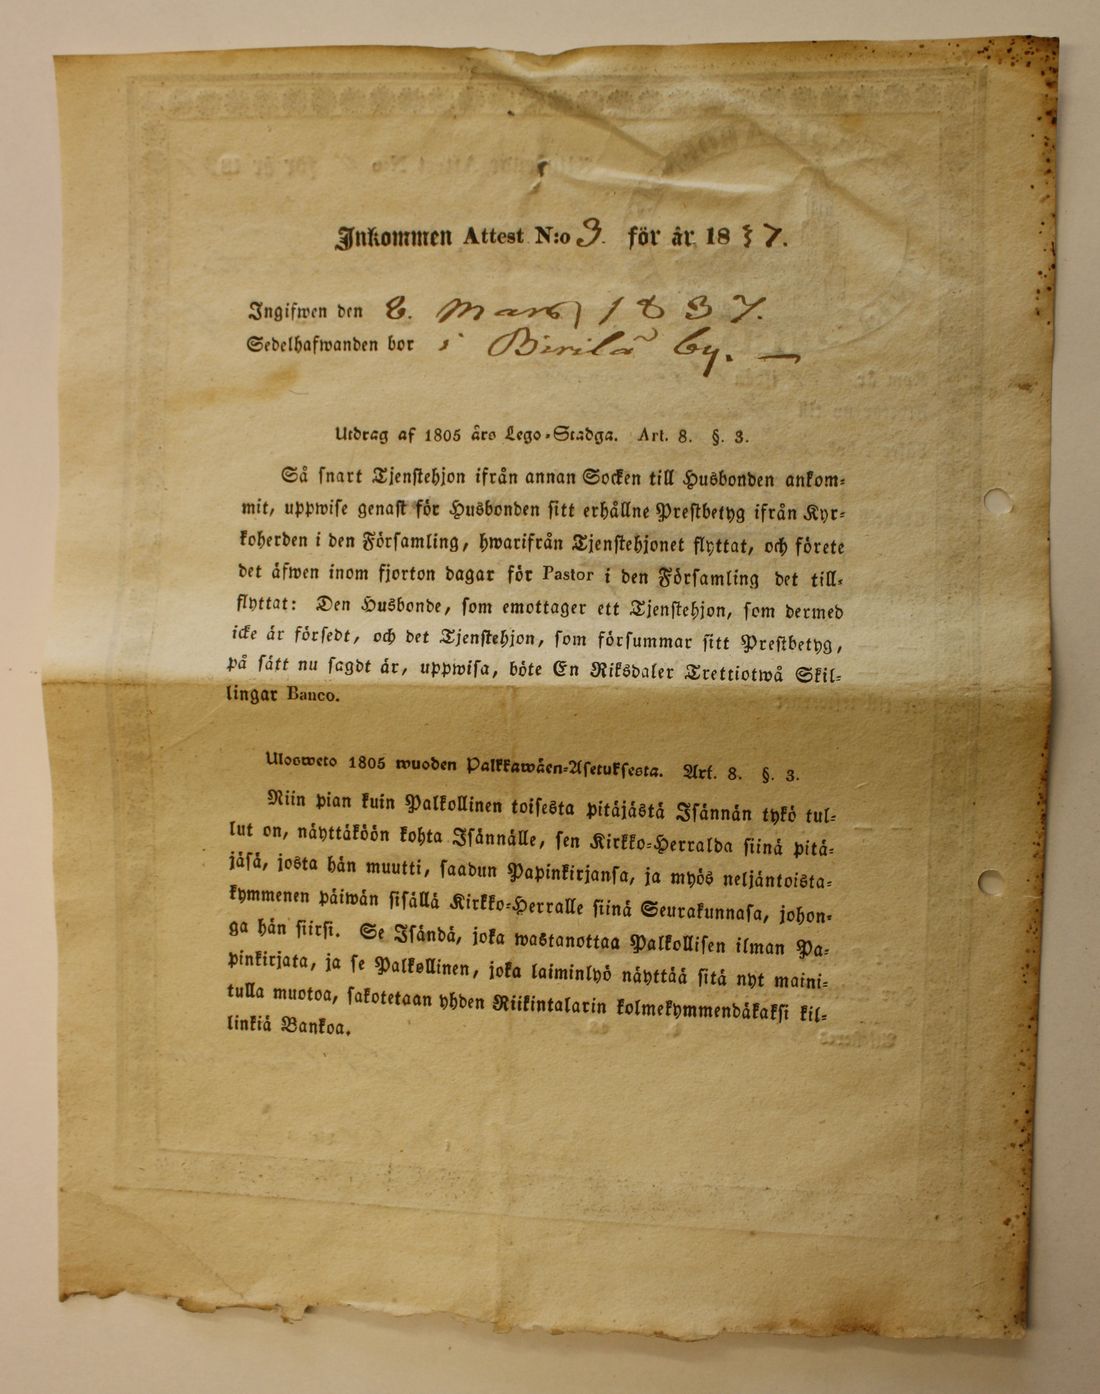 Inkommen Attest N:o 3. för år 1837.
Ingifwen den 8. Mars 1837.
Sedelhafwanden bor i Birilä by. —
Utdrag af 1805 års Lego-Stadga. Art. 8. §. 3.
Så snart Tjenstehjon ifrån annan Socken till Husbonden ankom-
mit, uppwise genast för Husbonden sitt erhållne Prestbetyg ifrån Kyr-
koherden i den Församling, hwarifrån Tjenstehjonet flyttat, och förete
det äfwen inom fjorton dagar för Pastor i den Församling det till-
flyttat: Den Husbonde, som emottager ett Tjenstehjon, som dermed
icke är försedt, och det Tjenstehjon, som försummar sitt Prestbetyg,
på sätt nu sagdt är, uppwisa, böte En Riksdaler Trettiotwå Skil-
lingar Banco.
Ulosweto 1805 wuoden Palkkawäen-Asetuksesta. Art. 8. §. 3.
Niin pian kuin Palkollinen toisesta pitäjästä Isännän tykö tul-
lut on, näyttäköön kohta Isännälle, sen Kirkko-Herralda siinä pitä-
jäsä, josta hän muutti, saadun Papinkirjansa, ja myös neljäntoista-
kymmenen päiwän sisällä Kirkko-Herralle siinä Seurakunnasa, johon-
ga hän siirsi. Se Isändä, joka wastanottaa Palkollisen ilman Pa-
pinkirjata, ja se Palkollinen, joka laiminlyö näyttää sitä nyt maini-
tulla muotoa, sakotetaan yhden Riikintalarin kolmekymmendäkaksi kil-
linkiä Bankoa.